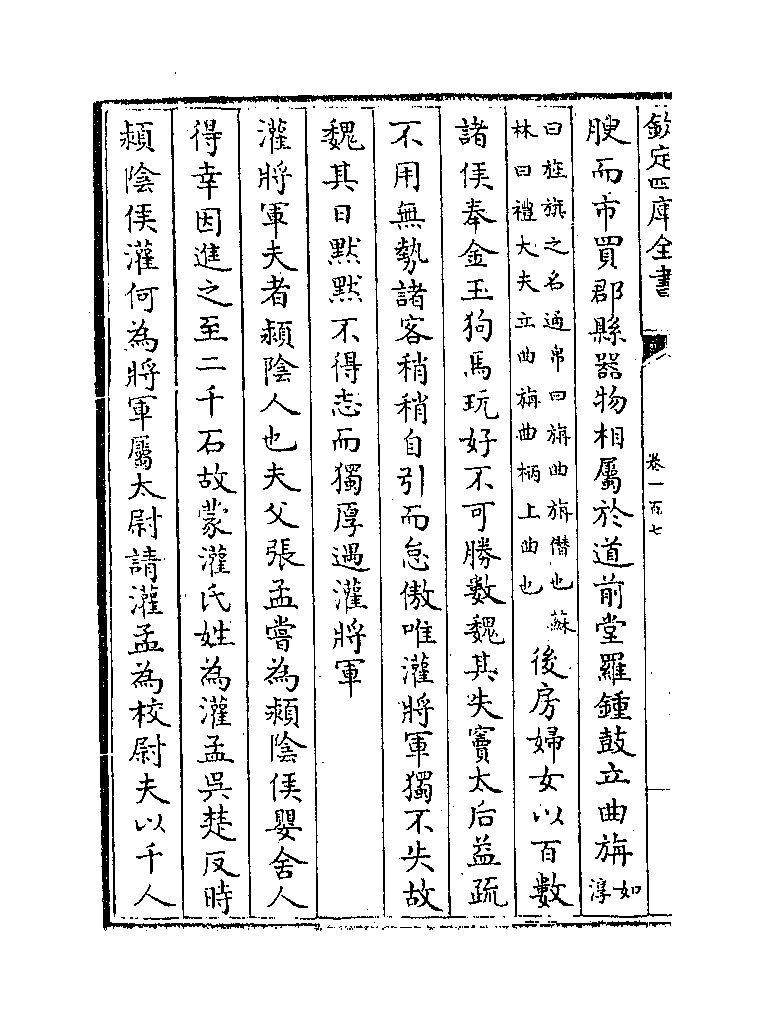 欽定四庫全書
卷一百七
腴而市買郡縣器物相屬於道前堂羅鍾鼓立曲旃如淳
曰旌旗之名通帛曰旃曲旃僣也蘇
林曰禮大夫立曲旃曲柄上曲也後房婦女以百數
諸侯奉金玉狗馬玩好不可勝數魏其失竇太后益疏
不用無勢諸客稍稍自引而怠傲唯灌將軍獨不失故
魏其日黙黙不得志而獨厚遇灌將軍
灌將軍夫者潁陰人也夫父張孟嘗為潁陰侯嬰舍人
得幸因進之至二千石故蒙灌氏姓為灌孟吳楚反時
潁陰侯灌何為將軍屬太尉請灌孟為校尉夫以千人